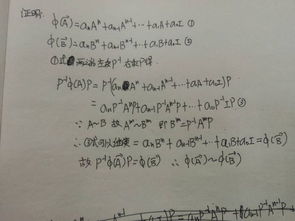 证明:
φ(A)=aₙAⁿ+aₙ₋₁Aⁿ⁻¹+⋯+a₁A+a₀I ①
φ(B)=aₙBⁿ+aₙ₋₁Bⁿ⁻¹+⋯a₁B+a₀I ②
①式 两边左乘P⁻¹ 右乘P得
P⁻¹φ(A)P=P⁻¹(aₙAⁿ+aₙ₋₁Aⁿ⁻¹+⋯+a₁A+a₀I)P
=aₙP⁻¹AⁿP+aₙ₋₁P⁻¹Aⁿ⁻¹P+⋯+a₀P⁻¹IP ③
∵ A~B 故 Aᵐ~Bᵐ 即 Bᵐ=P⁻¹AᵐP
∴ ③式 =aₙBⁿ+aₙ₋₁Bⁿ⁻¹+⋯+a₁B+a₀I=φ(B)
故 P⁻¹φ(A)P=φ(B) ∴ φ(A)~φ(B)